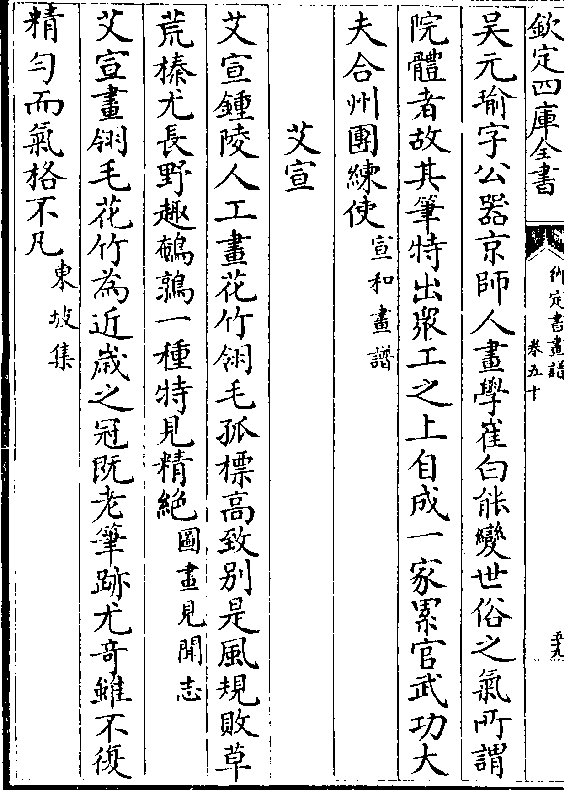 欽定四庫全書
御定書畫譜
卷五十
吴元瑜字公器京師人畫學崔白能變世俗之氣所謂
院體者故其筆特出衆工之上自成一家累官武功大
夫合州團練使宣和畫譜
艾宣
艾宣鍾陵人工畫花竹翎毛孤標高致别是風規敗草
荒榛尤長野趣鵪鶉一種特見精絶圖畫見聞志
艾宣畫翎毛花竹為近歲之冠既老筆跡尤竒雖不復
精勻而氣格不凡東坡集